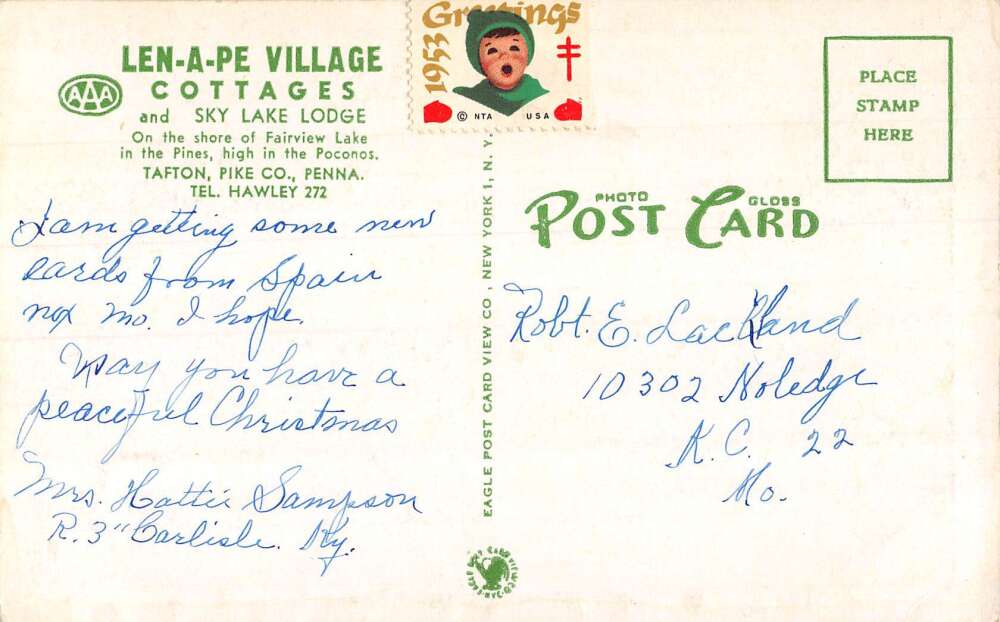 LEN-A-PE VILLAGE
COTTAGES
AAA
and SKY LAKE LODGE
On the shore of Fairview Lake
in the Pines, high in the Poconos.
TAFTON, PIKE CO., PENNA.
TEL. HAWLEY 272
I am getting some new
cards from Spain
nx mo. I hope.
May you have a
peaceful Christmas
Mrs. Hattie Sampson
R. 3" Carlisle. Ky.
Greetings
1953
© NTA USA
EAGLE POST CARD VIEW CO., NEW YORK 1, N. Y.
PLACE
STAMP
HERE
PHOTO GLOSS
POST CARD
Robt. E. Lackland
10302 Noledge
K.C. 22
Mo.